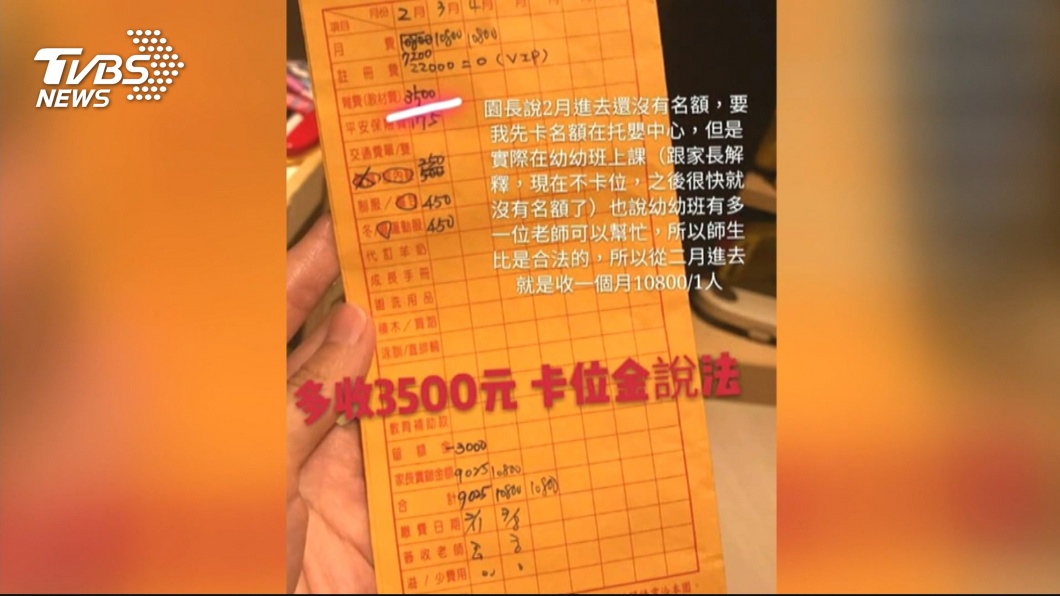 TVBS
NEWS
項目 月份 2月 3月 4月
月費 10800 10800
7200
註冊費 22000=0 (VIP)
雜費(教材費) 3500
平安保險費 175
交通費單/雙
500
450
冬 運動服 450
代訂羊奶
成長手冊
園 洗 用 品
積木/舞蹈
園長說2月進去還沒有名額，要
我先卡名額在托嬰中心，但是
實際在幼幼班上課（跟家長解
釋，現在不卡位，之後很快就
沒有名額了）也說幼幼班有多
一位老師可以幫忙，所以師生
比是合法的，所以從二月進去
就是收一個月10800/1人
多收3500元 卡位金說法
教育補助款
-3000
家長實繳金額 9025 10800
合計 9025 10800 10800
繳費日期 2/1 3/8
簽收老師
溢/少費用